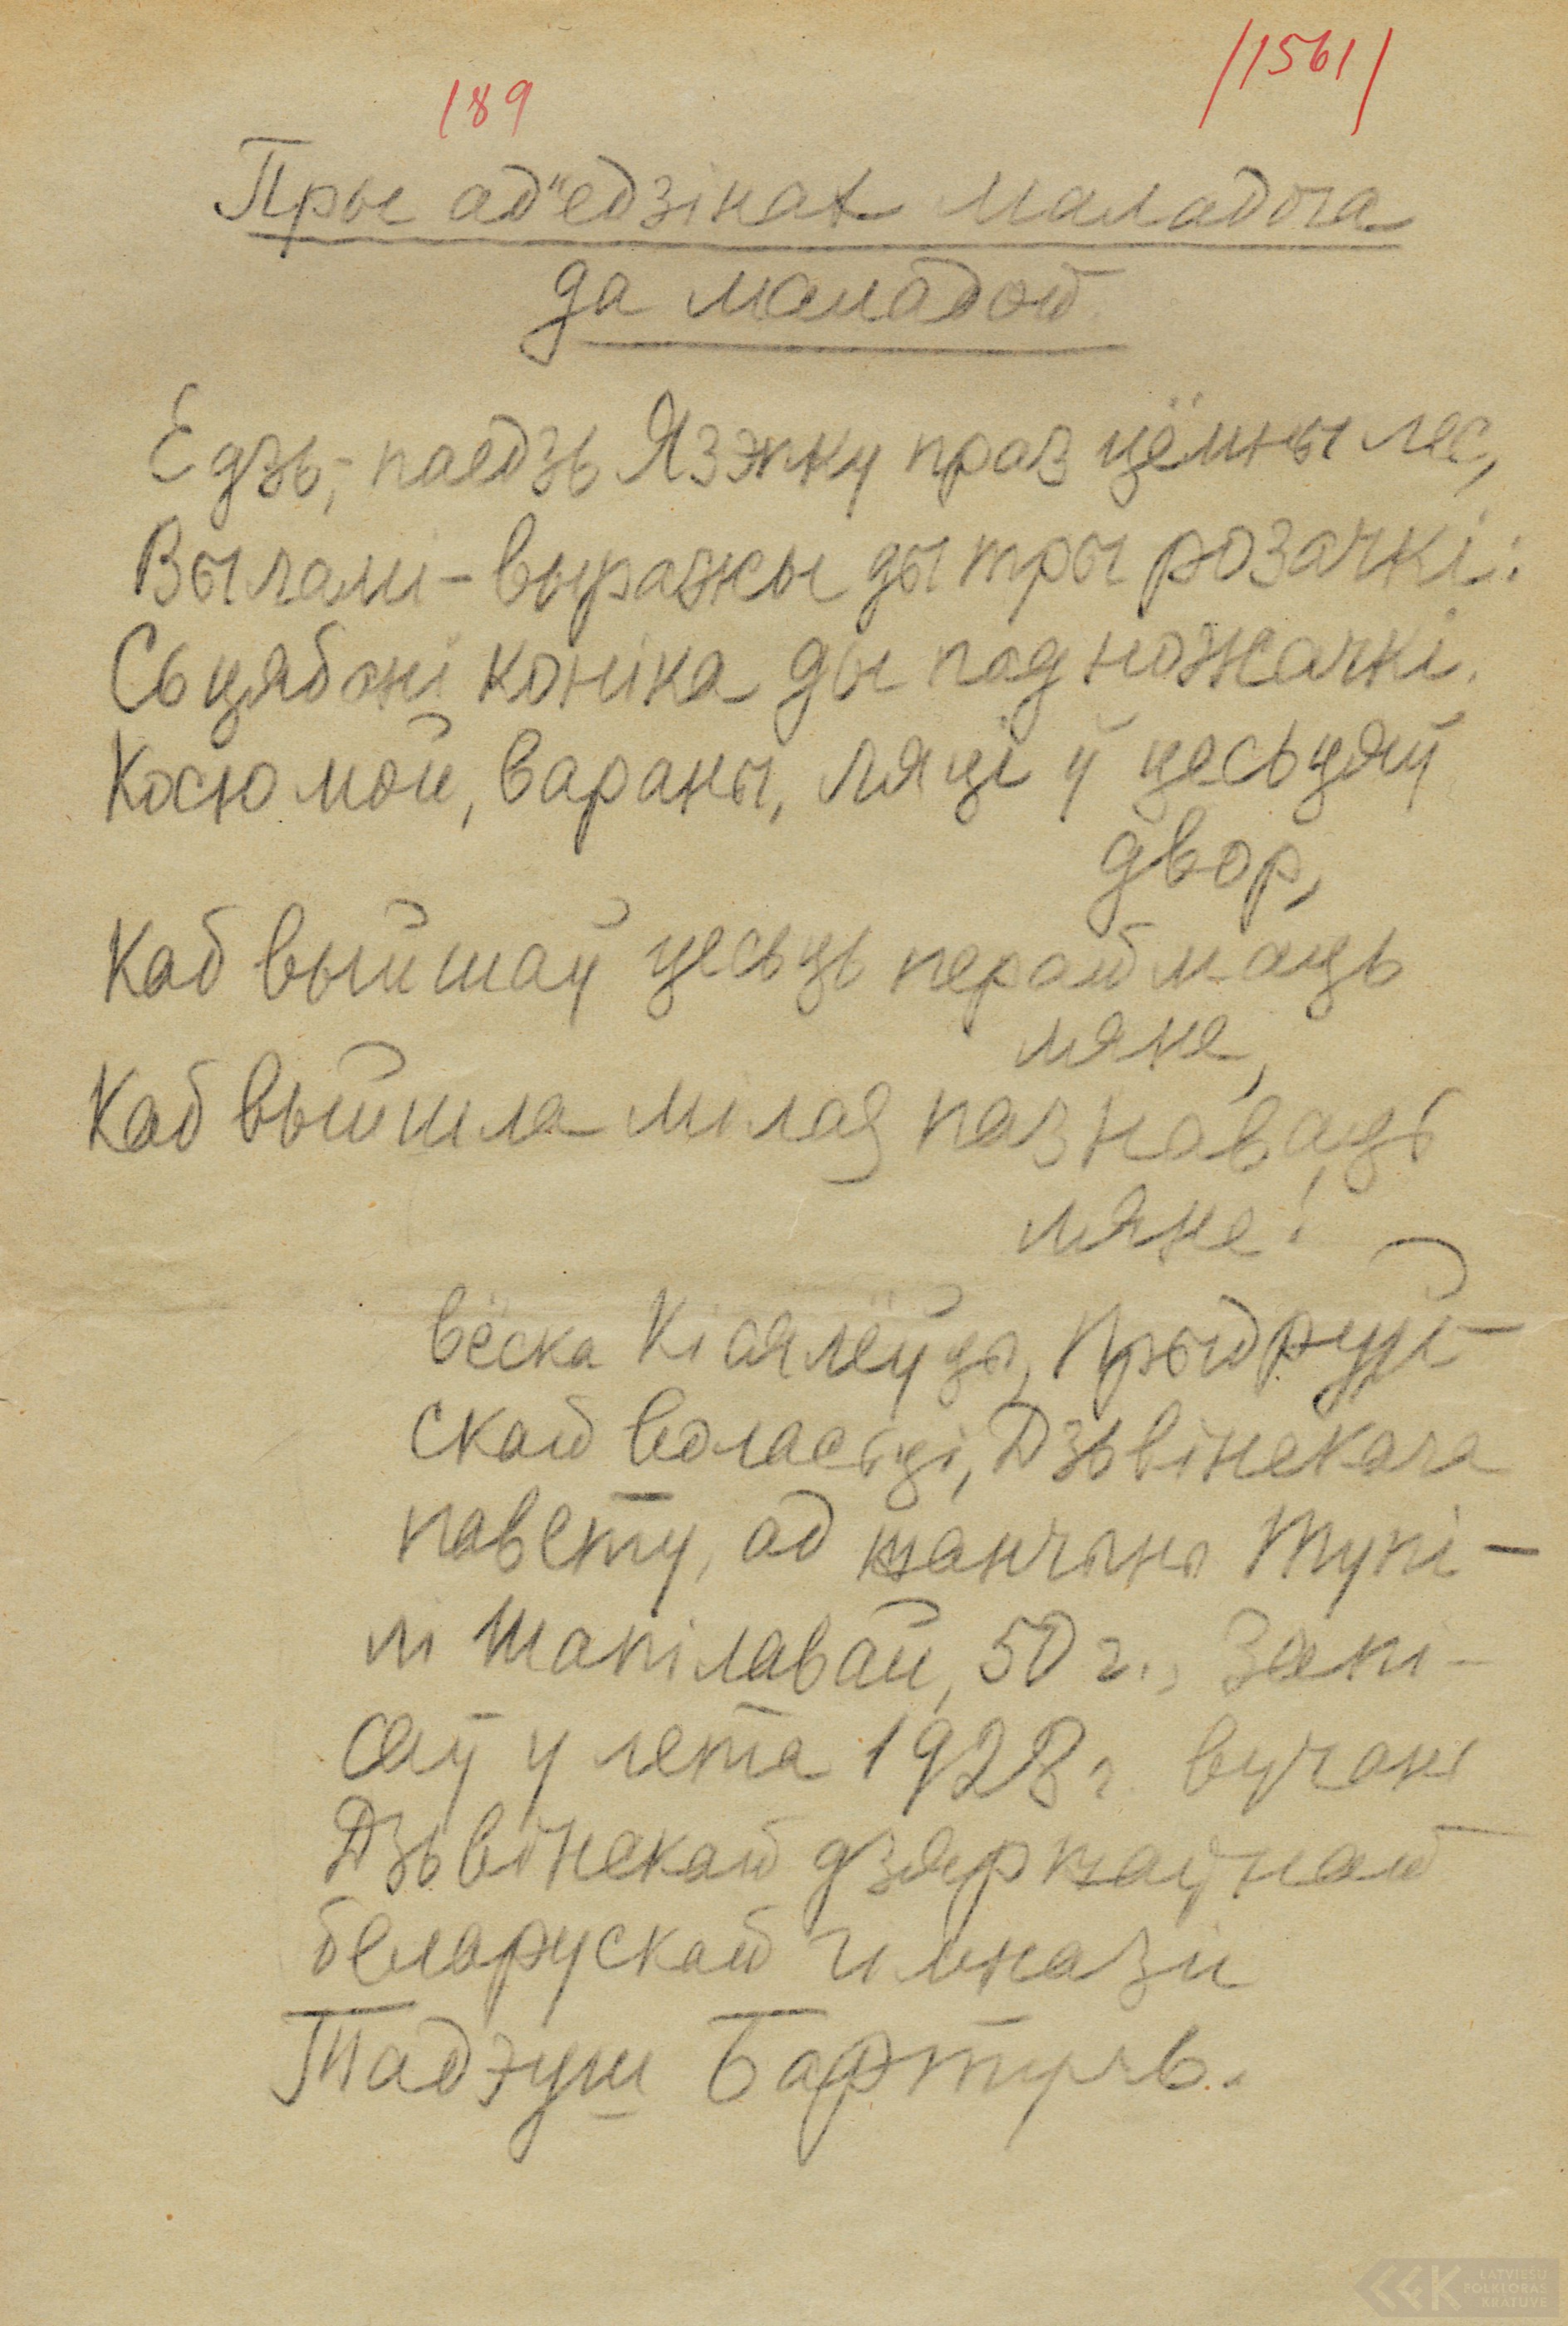 /1561/
189
Пры ад"едзінах маладога
да маладой.
Едзь,-паедзь Язэпку праз цёмны лес,
Выламі-выражы ды тры розачкі:
Сьцябані коніка ды под ножачкі.
Косю мой, вараны, ляці ў цесьцяў
двор,
Каб выйшаў цесьць пераймаць
мяне,
Каб выйшла мілая пазнаваць
мяне!
вёска Кісялёўцы, Прыдруй-
скай воласьці, Дзьвінскага
павету, ад жанчыны Тупі-
лі Шапілавай, 50 г., Запі-
саў у лета 1928 г. вучань
Дзьвінскай дзяржаўнай
беларускай гімназіі
Тадэуш Бартуль.
LATVIEŠU
FOLKLORAS
KRĀTUVE